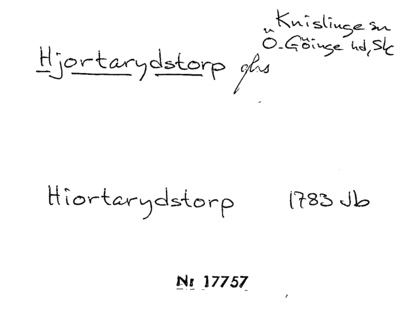 Knislinge sn
Ö. Göinge hd, Sk
Hjortarydstorp ghs
Hiortarydstorp 1783 Jb
Nr 17757